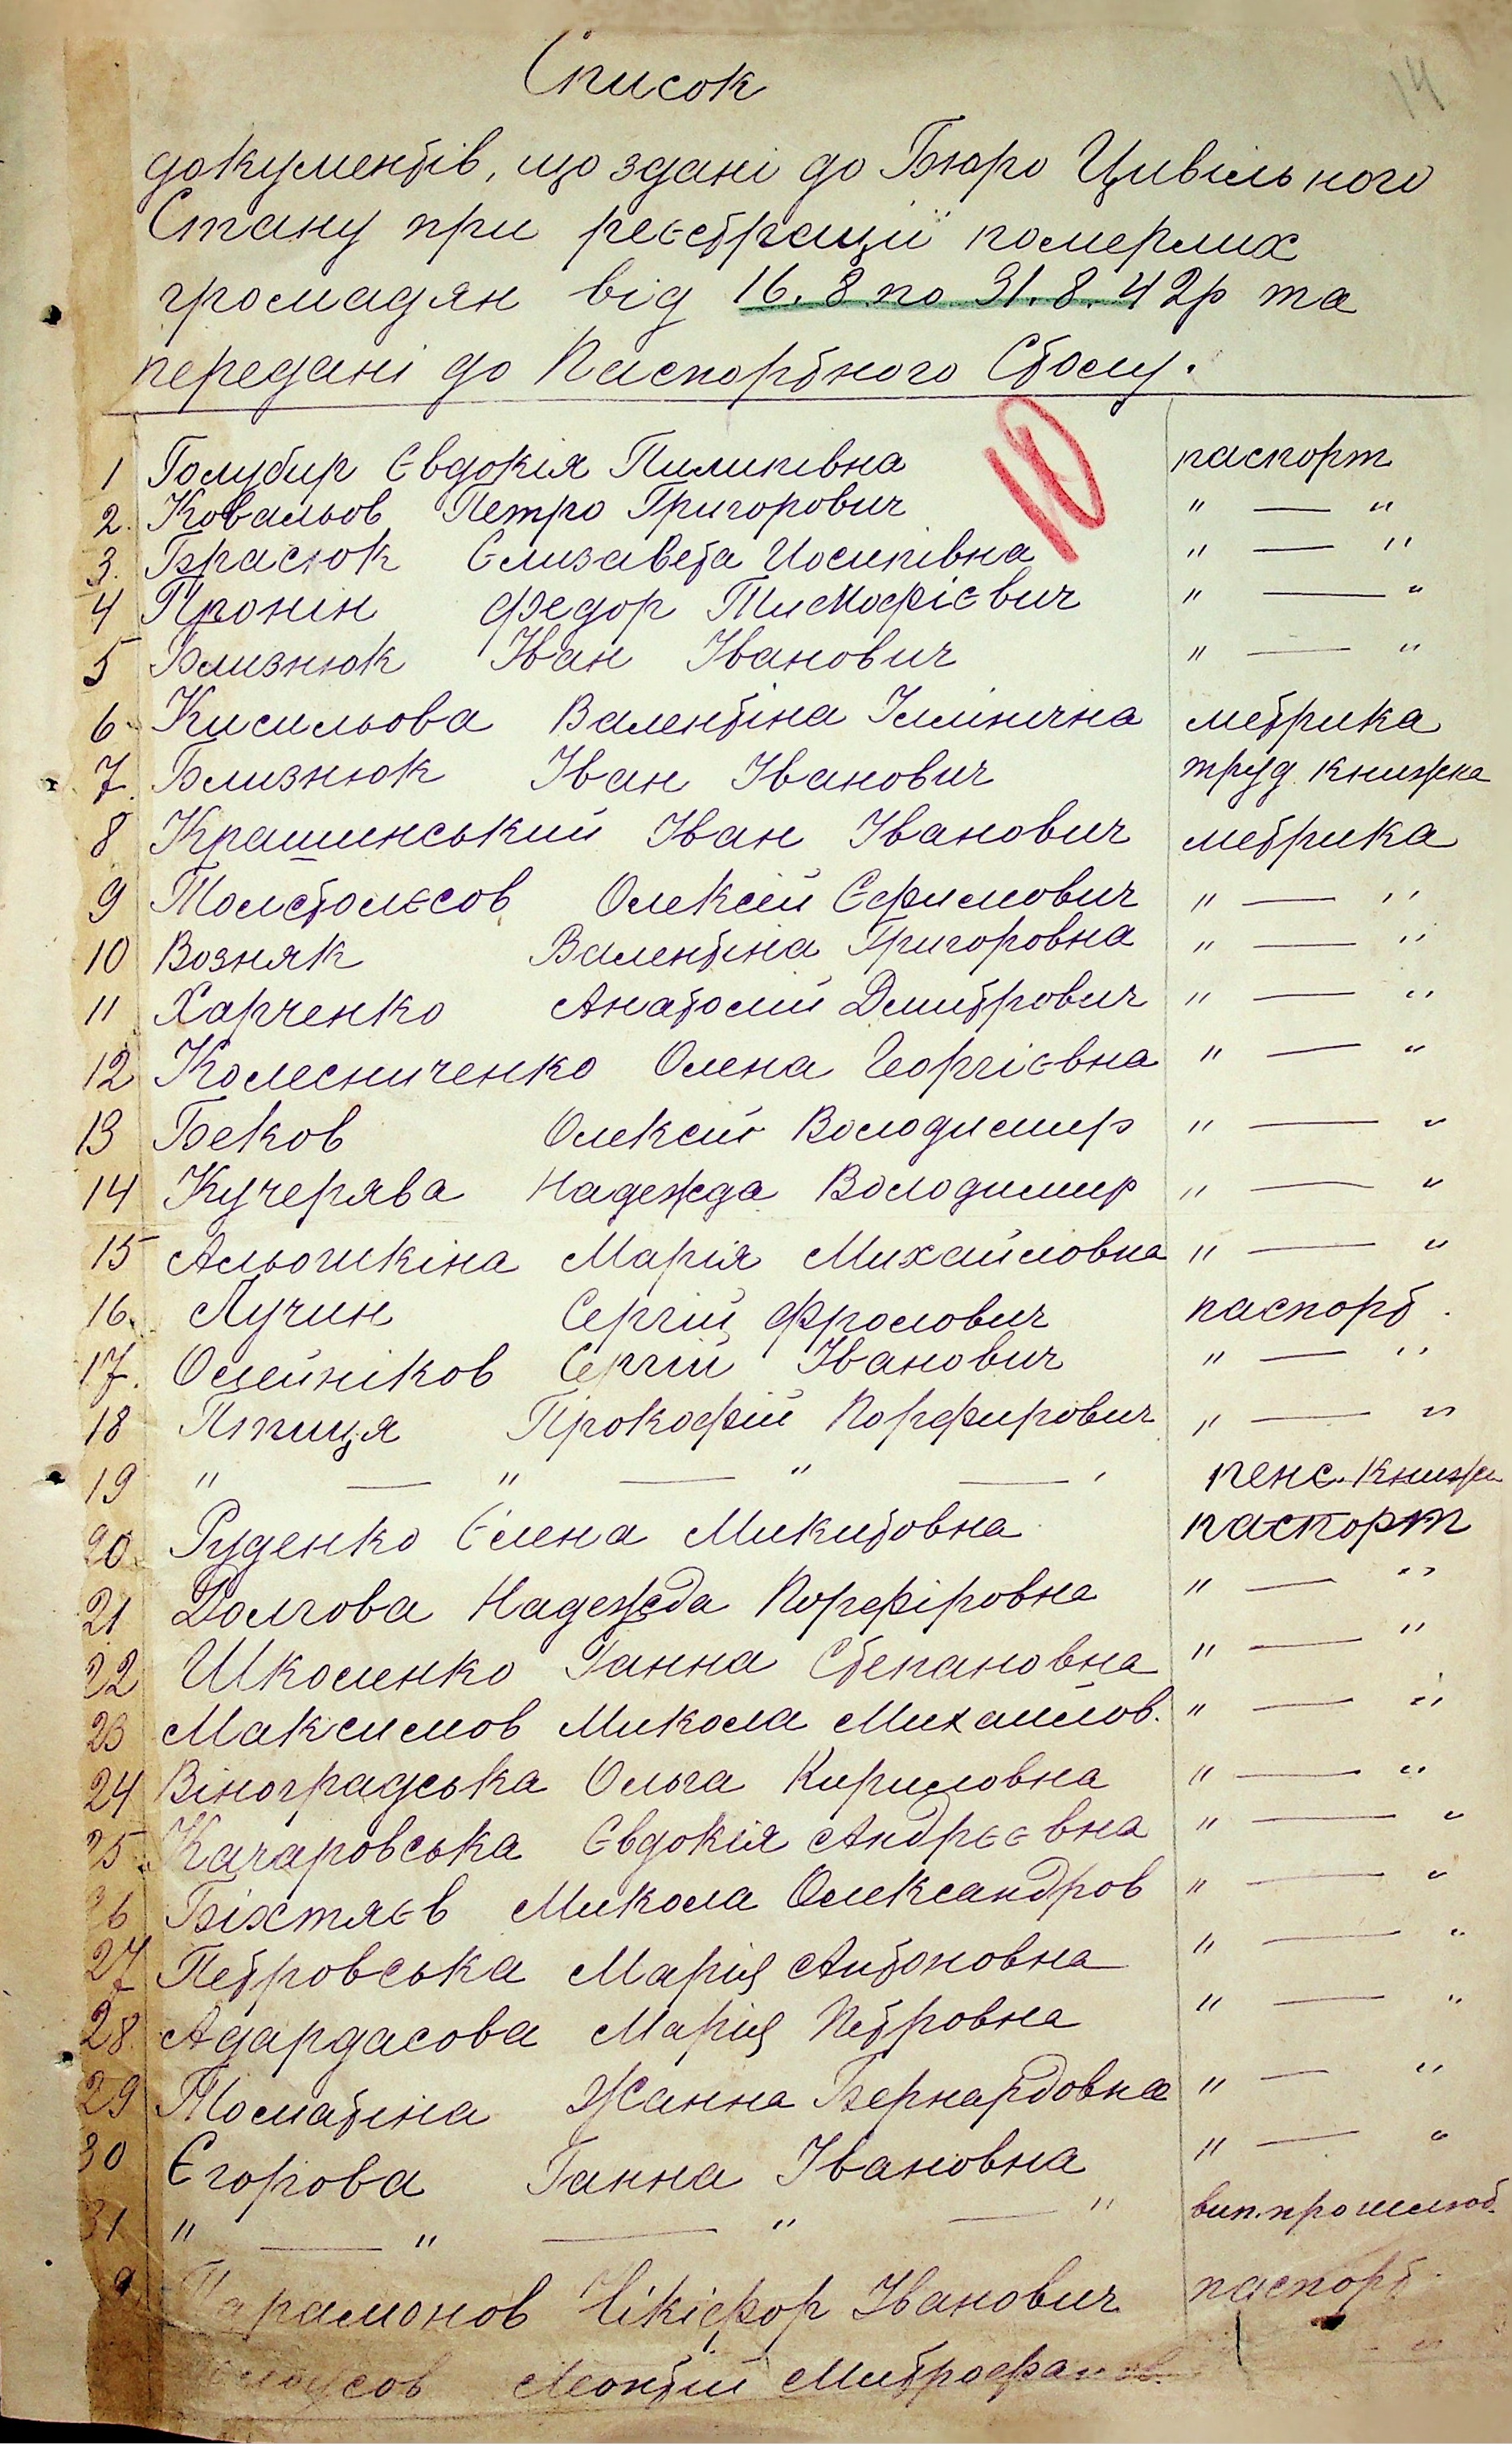 14
Список
документів, що здані до Бюро Цивільного
Стану при реєстрації померлих
громадян від 16.8 по 31.8.42р та
передані до Паспортного Столу.
1 Голубир Євдокія Пилипівна паспорт
2. Ковальов Петро Григорович " — "
3. Брасюк Єлизавета Иосипівна " — "
4 Пронін Федор Тимофієвич " — "
5 Близнюк Іван Іванович " — "
6. Кисильова Валентіна Іллінічна метрика
7. Близнюк Іван Іванович труд книжка
8 Крашинський Іван Іванович метрика
9 Толстолєсов Олексій Єфимович " — "
10 Возняк Валентіна Григоровна " — "
11 Харченко Анатолій Дмитрович " — "
12 Колесниченко Олена Георгієвна " — "
13 Беков Олексій Володимир " — "
14 Кучерява Надежда Володимир " — "
15 Альошкіна Марія Михайловна " — "
16. Лучин Сергій Фролович паспорт.
17. Олейніков Сергій Іванович " — "
18 Птиця Прокофій Порфирович " — "
19 " — " — " — ' пенс. книжк
20. Руденко Єлена Микитовна паспорт
21 Долгова Надежда Порфіровна " — "
22 Школенко Ганна Степановна " — "
23 Максимов Микола Михайлов. " — "
24 Віноградська Ольга Кириловна " — "
25. Качаровська Євдокія Андрєєвна " — "
26 Біхтяєв Микола Олександров " — "
27 Петровська Марія Антоновна " — "
28. Адардасова Марія Петровна " — "
29 Томатіна Жанна Бернардовна " — "
30 Єгорова Ганна Івановна " — "
31 " — " — " — " вип. про шлюб.
Парамонов Нікіфор Іванович паспорт.
Леонтій Митрофанов. "